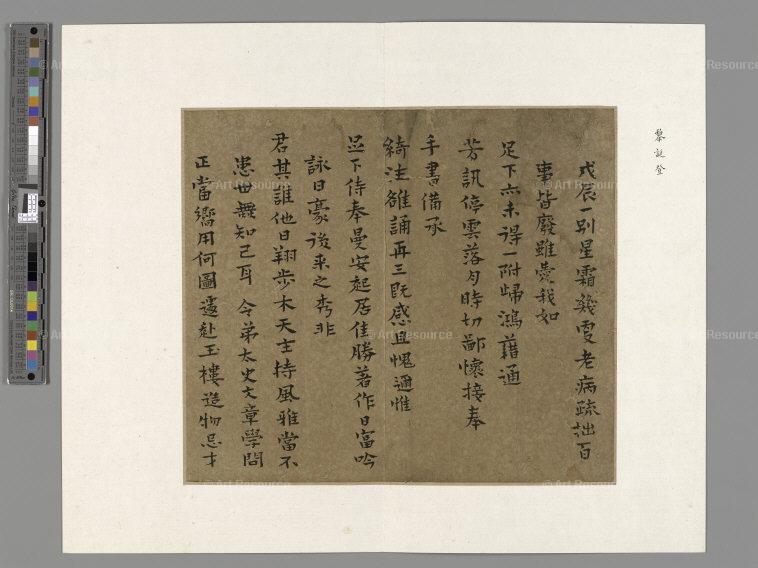 黎誕登
戊辰一別星霜幾更老病疏拙百
事皆廢雖愛我如
足下亦未得一附歸鴻藉通
芳訊停雲落月時切鄙懷接奉
手書備承
綺注雒誦再三既感且愧邇惟
並下侍奉曼安起居佳勝著作日富吟
詠日豪後來之秀非
君其誰他日翔步木天主持風雅當不
患世無知己耳 令弟太史文章學問
正當嚮用何圖遽赴玉樓造物忌才
© Art Resource